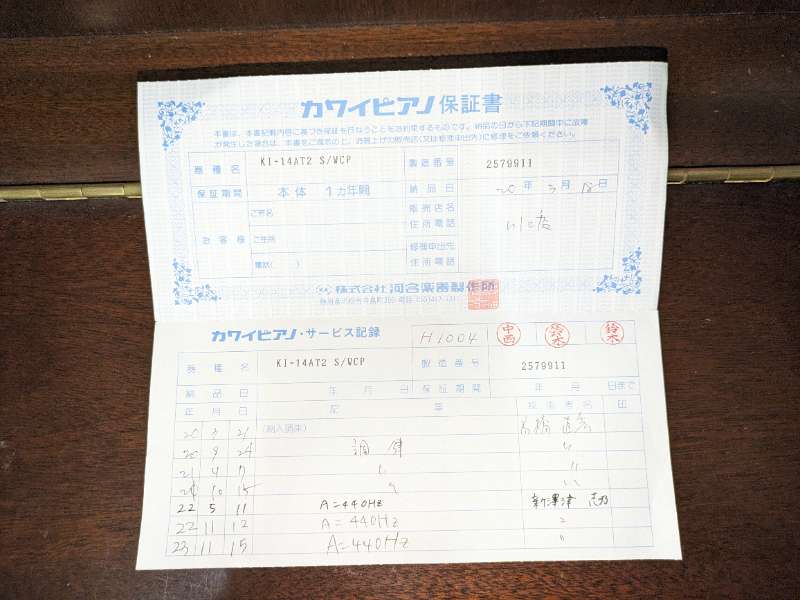 カワイピアノ 保証書
本書は、本書記載内容に基づき保証を行なうことをお約束するものです。納品の日から下記期間中に故障
が発生した場合は、本書をご提示の上、お買上げの販売店(又は修理申出先)に修理をご依頼ください。
器種名 KI-14AT2 S/WCP 製造番号 2579911
保証期間 本体 1カ年間 納品日 20年3月18日
お客様 ご芳名 販売店名
住所電話
ご住所 修理申出先
電話( ) 住所電話
株式会社 河合楽器製作所
カワイピアノ・サービス記録 H1004 中西 鈴木
器種名 KI-14AT2 S/WCP 製造番号 2579911
納品日 年月日 保証期間 年月日まで
年月日 記事 技術者名 印
20 3 21 (納入調律)
20 9 24 調律 〃
21 4 〃 〃
10 15 〃
22 5 11 A=440Hz
22 11 12 A=440Hz 〃
23 11 15 A=440Hz 〃